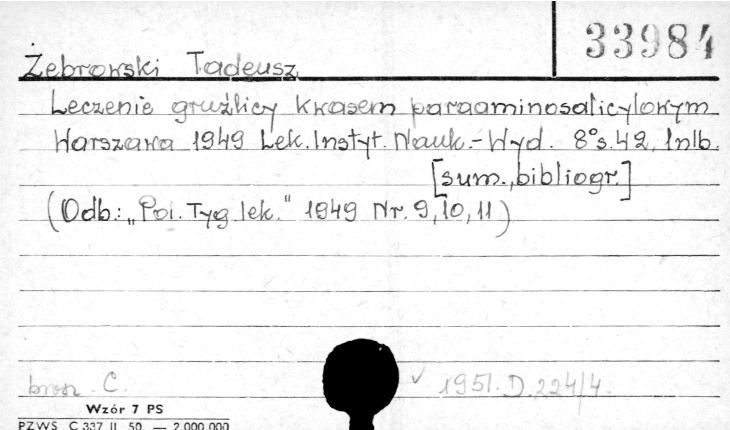 33984
Żebrowski Tadeusz
Leczenie gruźlicy kwasem paraaminosalicylowym
Warszawa 1949 Lek. Instyt. Nauk.-Wyd. 8°s.42, 1nlb.
[sum., bibliogr.]
(Odb.: „Pol. Tyg. lek." 1949 Nr. 9, 10, 11)
brosz. C. √ 1951.D.224/4.
Wzór 7 PS
PZWS C 337 II 50 — 2.000.000